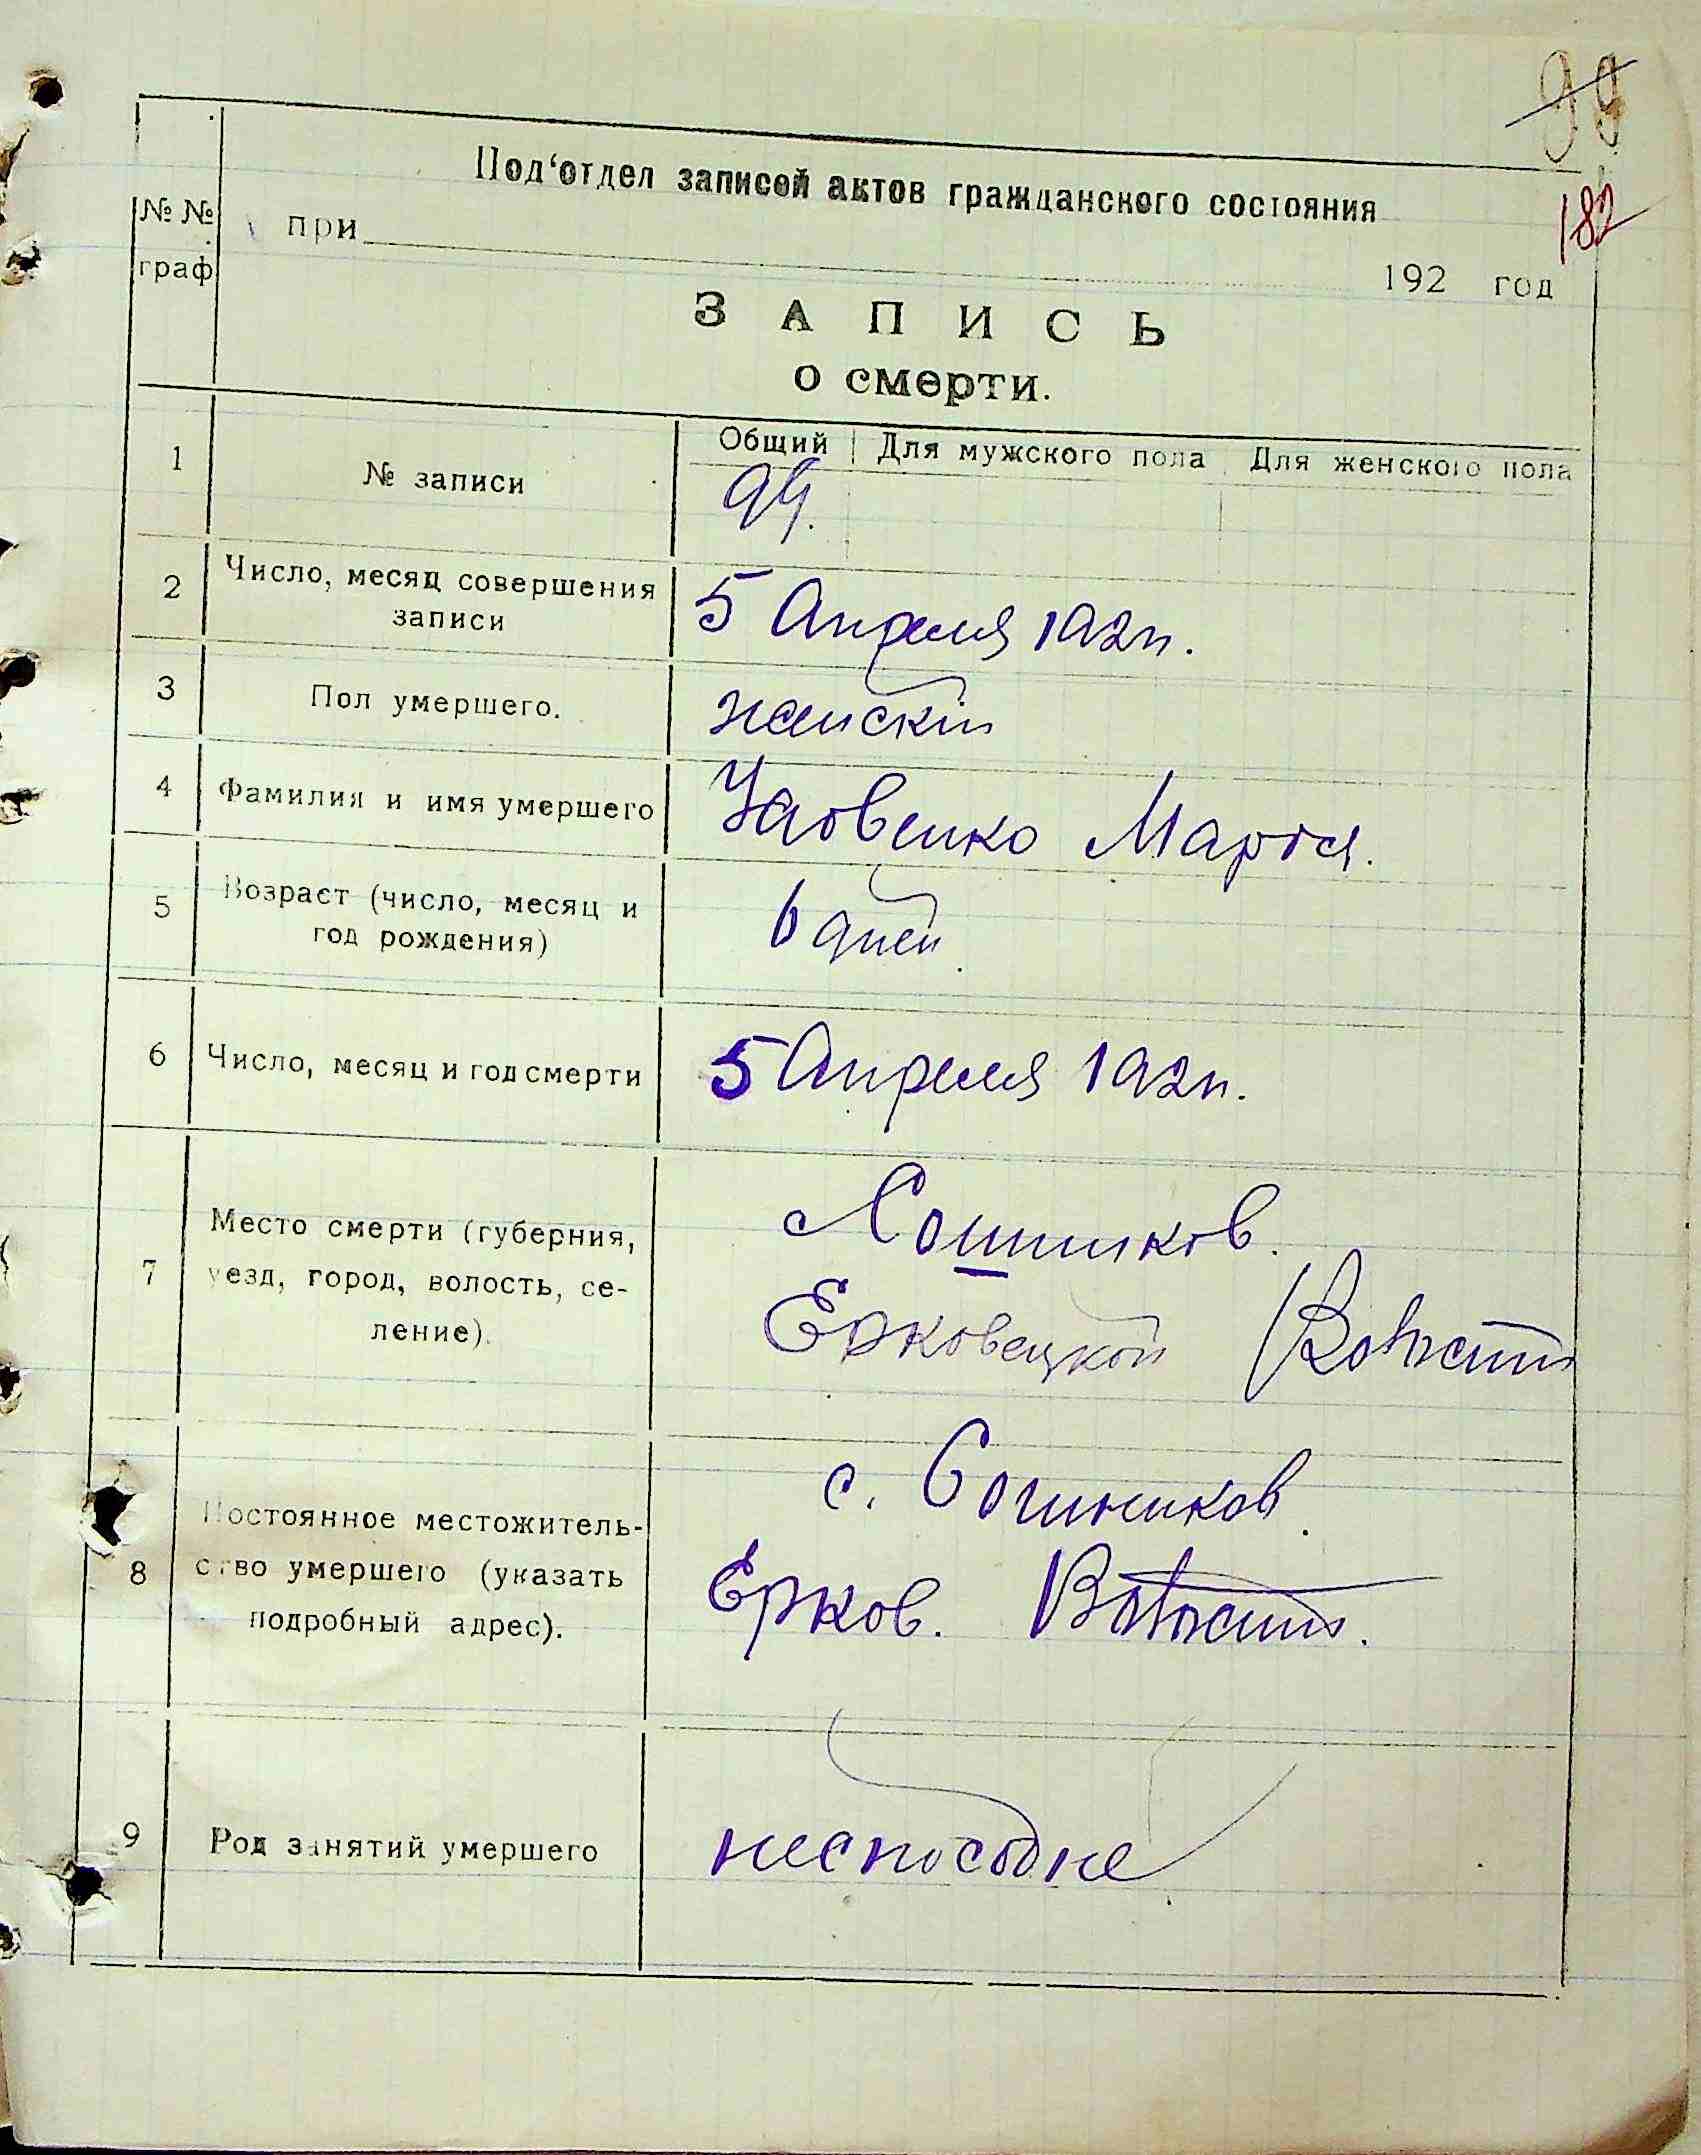 99
182
Под'отдел записей актов гражданского состояния
№ № граф
при 192 год
ЗАПИСЬ
о смерти.
1 № записи
Общий Для мужского пола Для женского пола
94.
2 Число, месяц совершения
записи
5 Апреля 192
3 Пол умершего.
женскій
4 Фамилия и имя умершего
Марія.
5 Возраст (число, месяц и
год рождения)
6 дней
6 Число, месяц и год смерти
5 Апреля 192
7 Место смерти (губерния,
уезд, город, волость, се-
ление).
с Сошников.
Ерковецкой Волости
8 Постоянное местожитель-
ство умершего (указать
подробный адрес).
с. Сошников.
Ерков. Волости.
9 Род занятий умершего